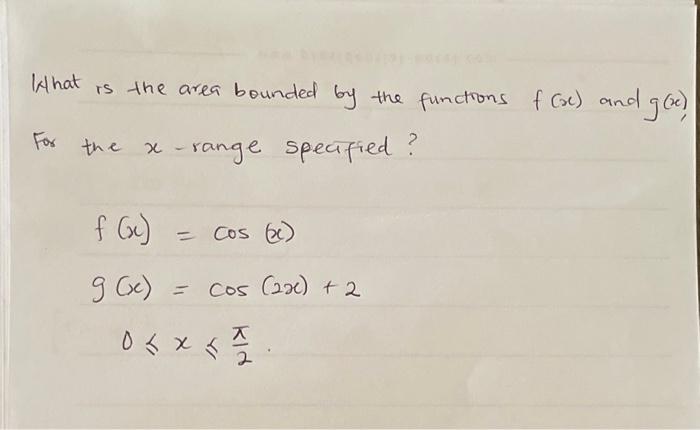 What is the area bounded by the functions f(x) and g(x),
For the x-range specified?
f(x) = cos(x)
g(x) = cos(2x) + 2
0 ⩽ x ⩽ π/2.